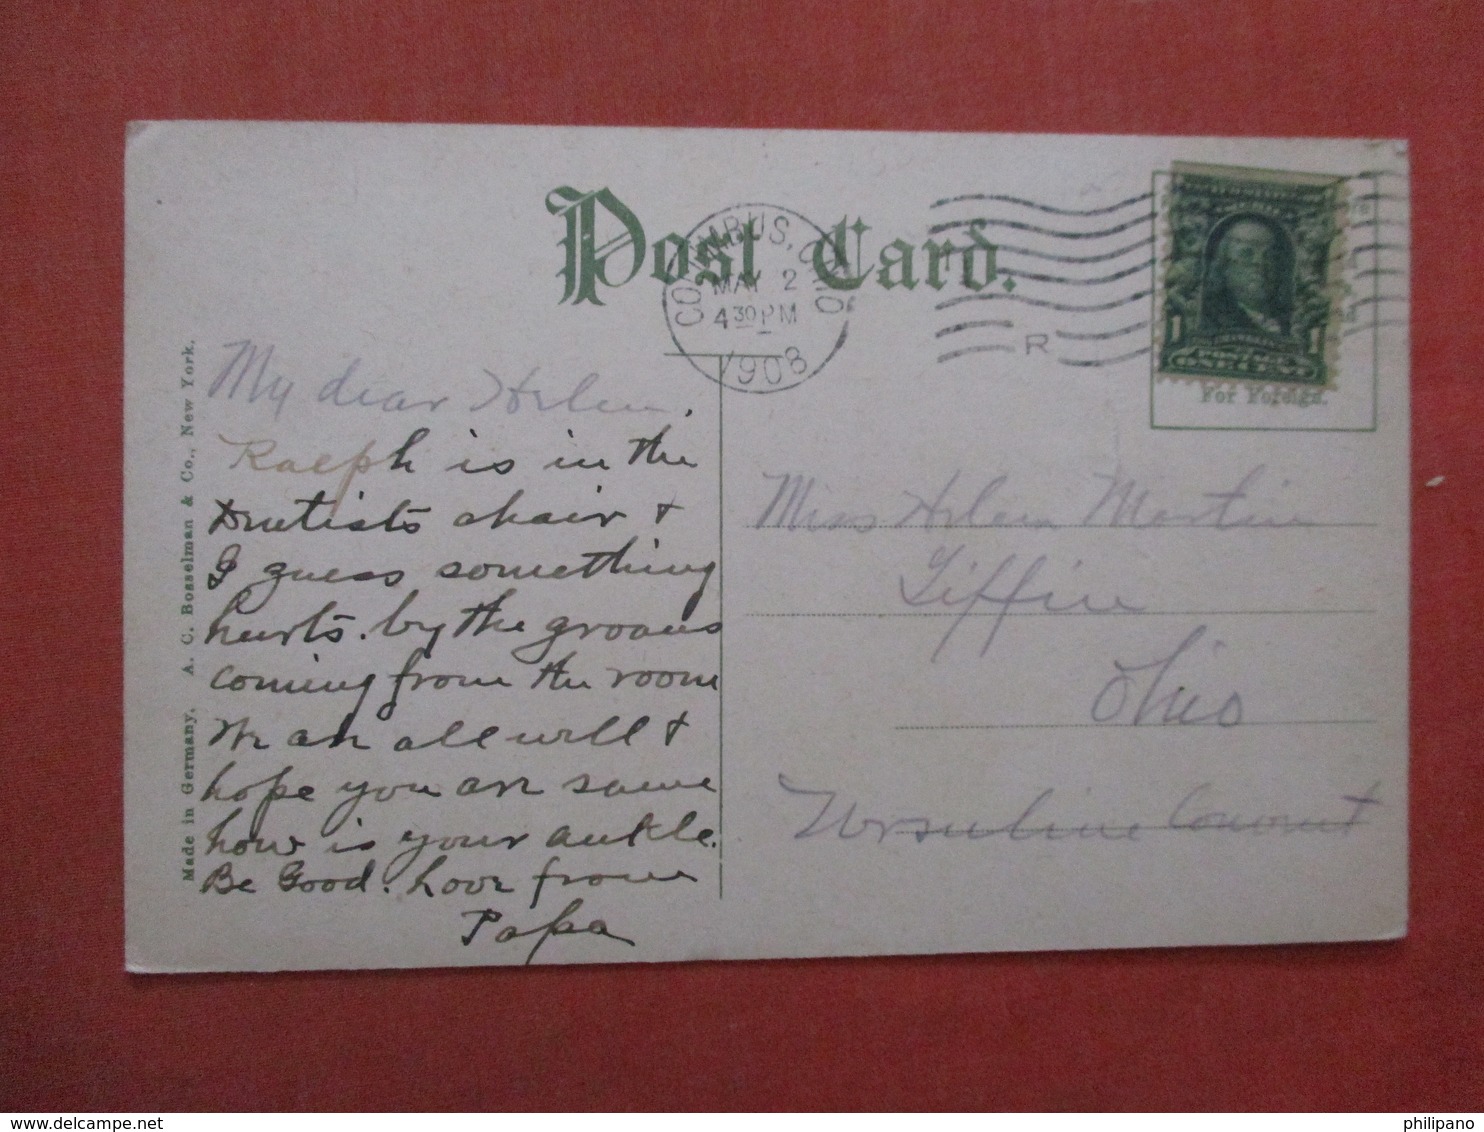 Post Card.
COLUMBUS, OHIO
MAY 2
4 30 PM
1908
R
1 1
For Foreign.
Made in Germany. A. C. Bosselman & Co., New York.
My dear Helen,
Ralph is in the
Dentists chair &
I guess something
hurts. by the groans
coming from the room
We are all well &
hope you are same
how is your ankle.
Be Good. Love from
Papa
Miss Helen Martin
Tiffin
Ohio
Ursuline Convent
www.delcampe.net
philipano